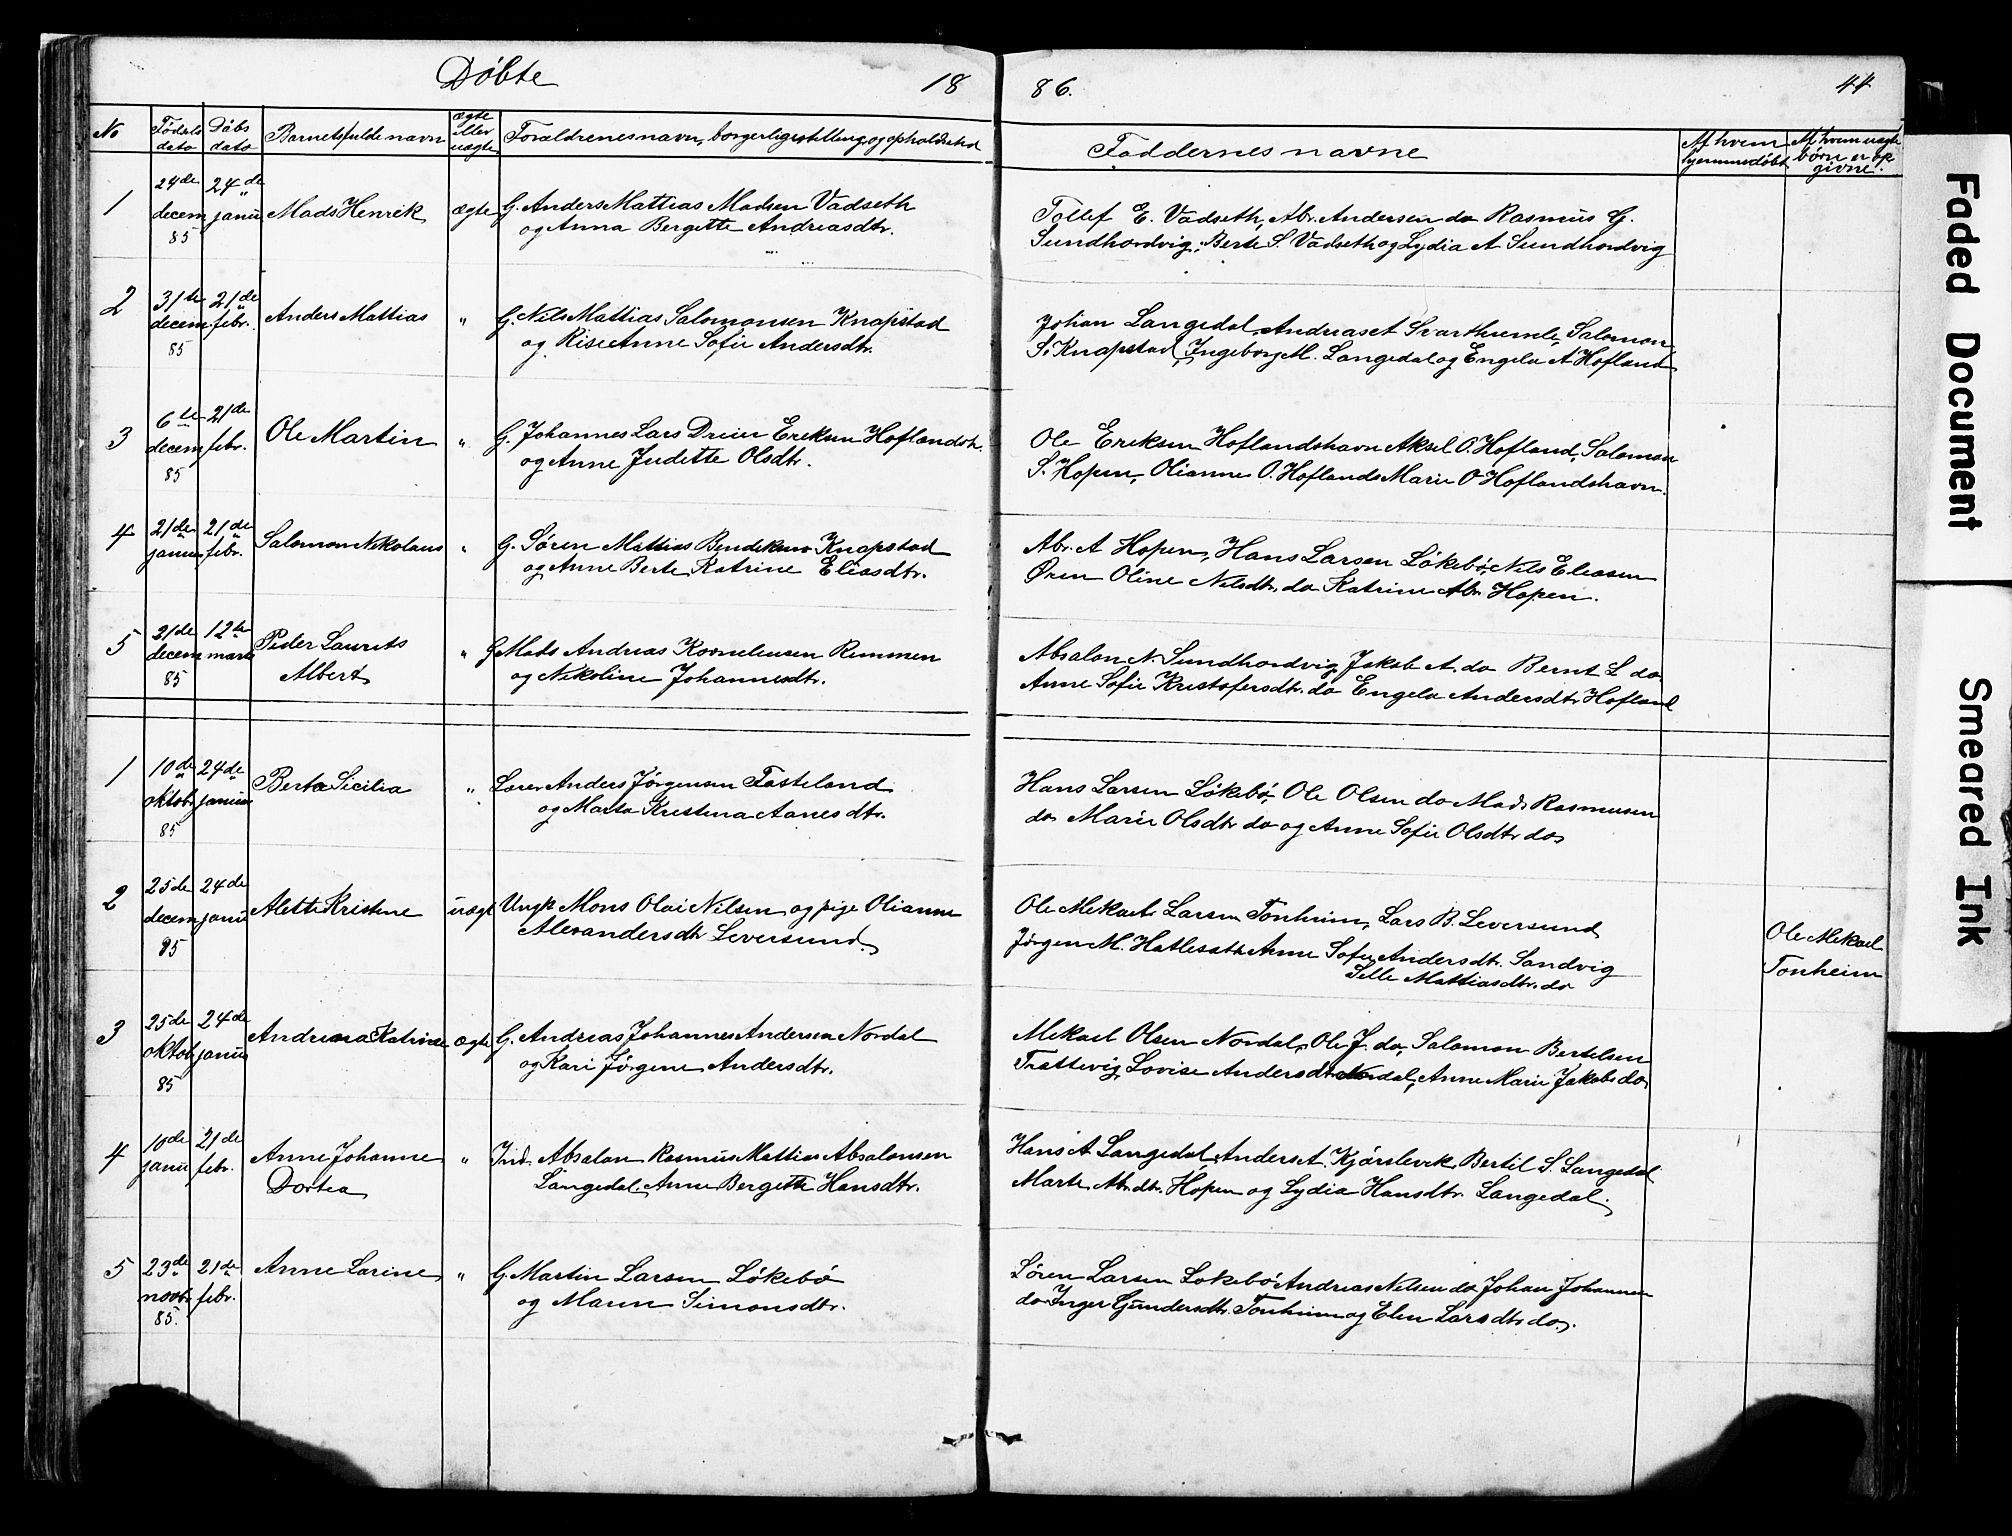 Döbte 18 86. 44
No Födsels dato Döbs dato Barnets fulde navn ægte eller uægte Forældrenes navn, borgerlige stilling og opholdssted Faddernes navne Af hvem hjemmedöbt Af hvem uægte børn er op givne.
1 29de decem 85 24de janu Mads Henrik ægte G. Anders Mattias Madsen Vadseth
og Anna Bergitte Andreasdtr.
Tollef E. Vadseth, Abr. Andersen do Rasmus G.
Sundhordvig, Berte S. Vadseth og Lydia A Sundhordvig
2 31te decem. 85 21de febr. Anders Mattias " G. Nils Mattias Salomonsen Knapstad
og Anne Sofie Andersdtr.
Johan Langedal, Andreas A Svarthumle, Salomon
S. Knapstad, Ingeborg M. Langedal og Engela A Hofland
3 6te decem 85 21de febr. Ole Martin " G. Johannes Lars Dreier Eriksen Hoflandsh.
og Anne Judette Olsdtr.
Ole Eriksen Hoflandshavn Aksel O. Hofland, Salomon
S. Hopen, Olianne O. Hoflands Marie O Hoflandshavn.
4 21de janu 21de febr. Salomon Nikolaus " G. Sören Mattias Bendiksen Knapstad
og Anne Berte Katrine Eliasdtr.
Abr. A Hopen, Hans Larsen Lökebö, Nils Eliasen
Øren Oline Nilsdtr. do Katrine Abr. Hopen.
5 21de decem 85 12te marts Peder Laurits
Albert " G Mads Andreas Korneliusen Remmen
og Nikoline Johannesdtr.
Absalon N. Sundhordvig, Jakob A. do Bernt L do
Anne Sofie Kristofersdtr. do Engela Andersdtr Hofland
1 10de oktob. 85 24de janu Berta Sicilia " Anders Jörgensen Fosteland
og Marta Kristina Aanesdtr.
Hans Larsen Lökebö, Ole Olsen do Mads Rasmusen
do Marie Olsdtr do og Anne Sofie Olsdtr do
2 25de decem 85 24de janu Alette Kristine uægt Ungk Mons Olai Nilsen og pige Olianne
Alexandersdtr Leversund
Ole Mikael Larsen Tonheim, Lars B. Leversund
Jörgen M. Hatleseth Anne Sofie Andersdtr. Sandvig
Sille Mattiasdtr. do
Ole Mikael
Tonheim
3 25de oktob. 85 24de janu Andrea Katrine ægte G. Andreas Johannes Andersen Nordal
og Kari Jörgine Andersdtr.
Mikael Olsen Nordal, Ole J. do, Salomon Bertelsen
Trættevig, Lovise Andersdtr. Nordal, Anne Marie Jakobs do
4 10de janu 21de febr. Anne Johanne
Dortea " Ind. Absalon Rasmus Mattias Absalonsen
Langedal, Anne Bergitte Hansdtr.
Hans A Langedal, Anders A. Kjörslevik Bertil S. Langedal
Marte Abr.dtr. Hopen og Lydia Hansdtr. Langedal.
5 23de novbr 85. 21de febr. Anne Larine " G. Martin Larsen Lökebö
og Maren Simonsdtr.
Sören Larsen Lökebö Andreas Nilsen do Johan Johannesen
do Inger Gundersdtr. Tonheim og Elen Larsdtr do.
Faded Document
Smeared Ink